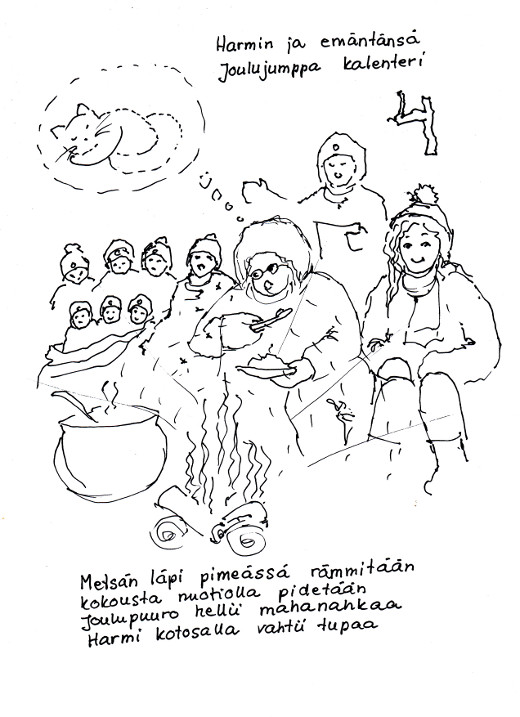 Harmin ja emäntänsä
Joulujumppa kalenteri
4
Metsän läpi pimeässä rämmitään
kokousta nuotiolla pidetään
Joulupuuro hellii mahanahkaa
Harmi kotosalla vahtii tupaa